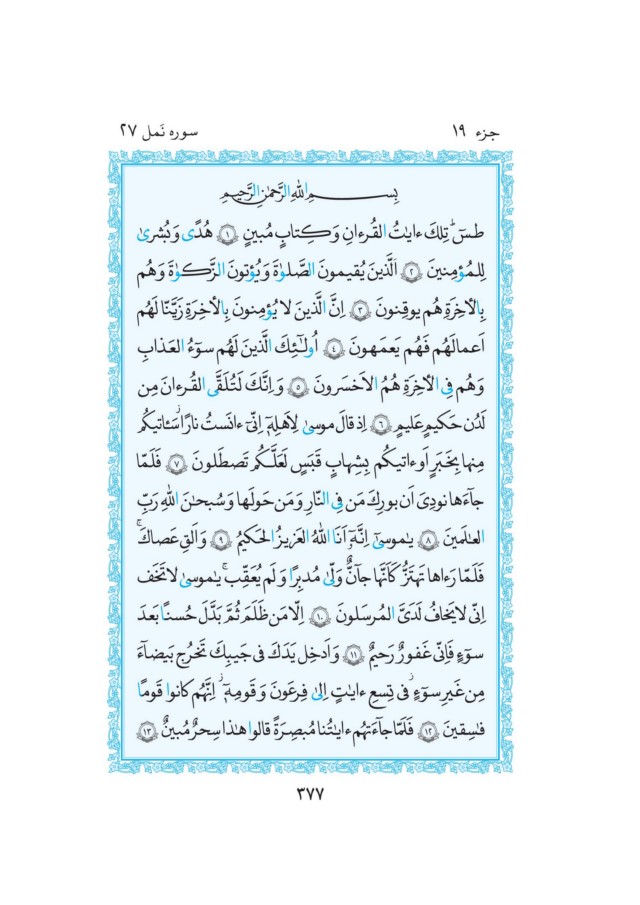 جزء ۱۹
سوره نَمل ۲۷
بِسمِ اللهِ الرَّحمٰنِ الرَّحيمِ
طسٓ ۚ تِلكَ ءاياتُ القُرءانِ وَ كِتابٍ مُبينٍ ﴿۱﴾ هُدًى وَ بُشرىٰ
لِلمُؤمِنينَ ﴿۲﴾ اَلَّذينَ يُقيمونَ الصَّلوٰةَ وَ يُؤتونَ الزَّكوٰةَ وَ هُم
بِالأخِرَةِ هُم يوقِنونَ ﴿۳﴾ اِنَّ الَّذينَ لا يُؤمِنونَ بِالأخِرَةِ زَيَّنّا لَهُم
اَعمالَهُم فَهُم يَعمَهونَ ﴿۴﴾ اُولٰئِكَ الَّذينَ لَهُم سوٓءُ العَذابِ
وَ هُم فِي الأخِرَةِ هُمُ الاَخسَرونَ ﴿۵﴾ وَ اِنَّكَ لَتُلَقَّى القُرءانَ مِن
لَدُن حَكيمٍ عَليمٍ ﴿۶﴾ اِذ قالَ موسىٰ لِاَهلِهٖٓ اِنّىٓ ءانَستُ نارًا سَـٔاتيكُم
مِنها بِخَبَرٍ اَو ءاتيكُم بِشِهابٍ قَبَسٍ لَعَلَّكُم تَصطَلونَ ﴿۷﴾ فَلَمّا
جآءَها نودِىَ اَن بورِكَ مَن فِي النّارِ وَ مَن حَولَها وَ سُبحٰنَ اللهِ رَبِّ
العٰلَمينَ ﴿۸﴾ يٰموسىٰٓ اِنَّهٗٓ اَنَا اللهُ العَزيزُ الحَكيمُ ﴿۹﴾ وَ اَلقِ عَصاكَ ۚ
فَلَمّا رَءاها تَهتَزُّ كَاَنَّها جآنٌّ وَلّىٰ مُدبِرًا وَ لَم يُعَقِّب ۚ يٰموسىٰ لا تَخَف
اِنّى لا يَخافُ لَدَىَّ المُرسَلونَ ﴿۱۰﴾ اِلّا مَن ظَلَمَ ثُمَّ بَدَّلَ حُسنًا بَعدَ
سوٓءٍ فَاِنّى غَفورٌ رَحيمٌ ﴿۱۱﴾ وَ اَدخِل يَدَكَ فى جَيبِكَ تَخرُج بَيضآءَ
مِن غَيرِ سوٓءٍ ۖ فى تِسعِ ءاياتٍ اِلىٰ فِرعَونَ وَ قَومِهٖٓ ۚ اِنَّهُم كانوا قَومًا
فٰسِقينَ ﴿۱۲﴾ فَلَمّا جآءَتهُم ءاياتُنا مُبصِرَةً قالوا هٰذا سِحرٌ مُبينٌ ﴿۱۳﴾
۳۷۷